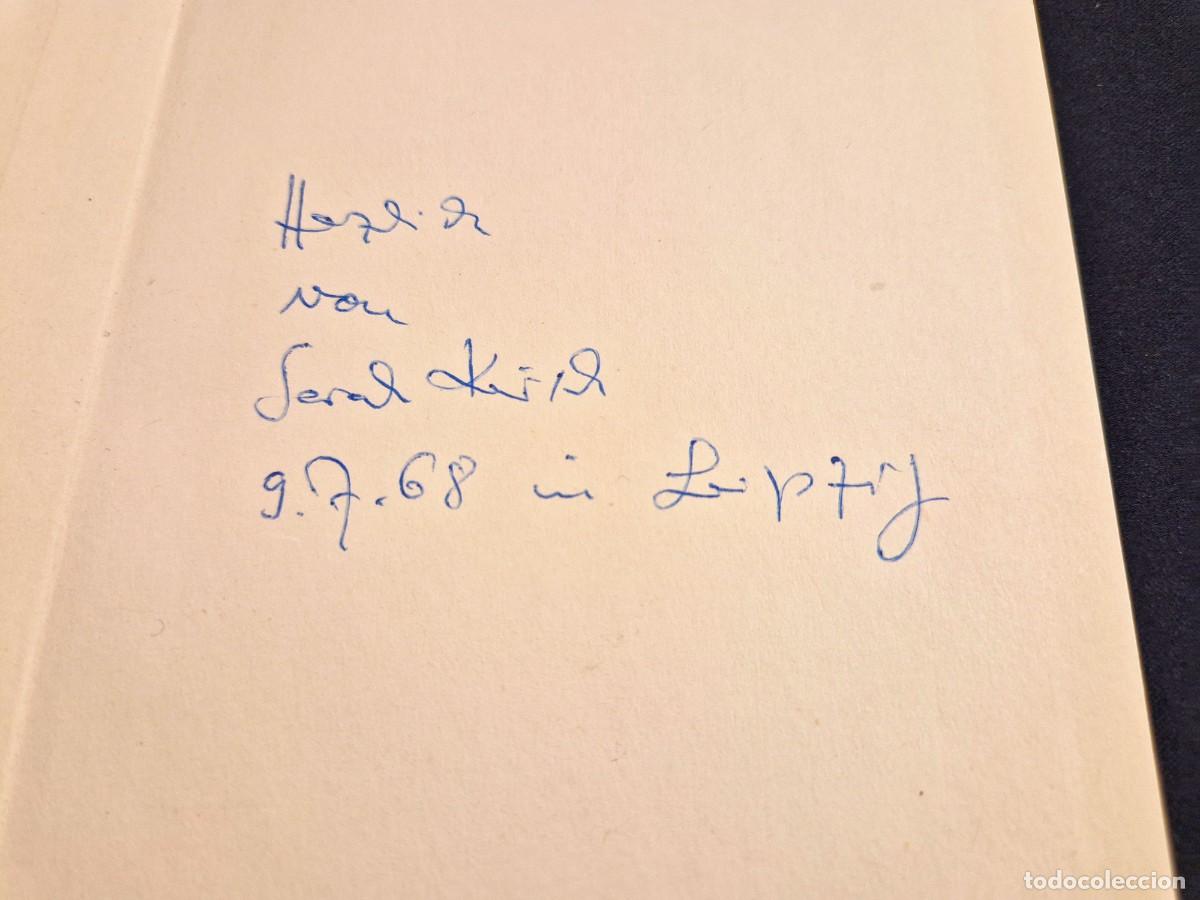 Herzlich
von
Sarah Kirsch
9.7.68 in Leipzig
todocoleccion